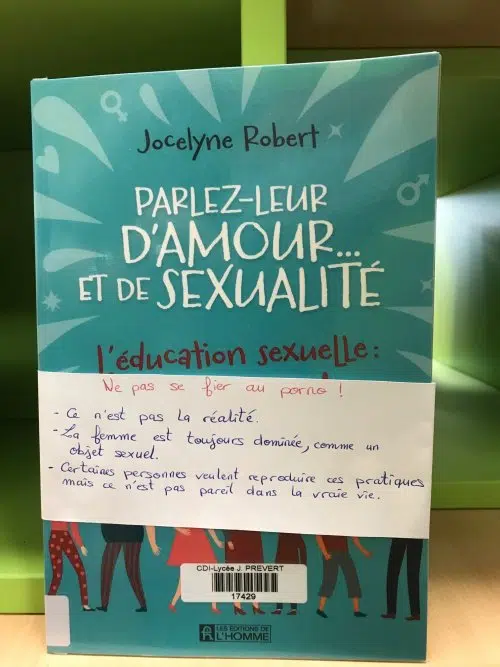 Jocelyne Robert
PARLEZ-LEUR
D'AMOUR...
ET DE SEXUALITÉ
L'éducation sexuelle :
Ne pas se fier au porno !
- Ce n'est pas la réalité.
- La femme est toujours dominée, comme un
objet sexuel.
- Certaines personnes veulent reproduire ces pratiques
mais ce n'est pas pareil dans la vraie vie.
CDI-Lycée J. PREVERT
17429
LES ÉDITIONS DE
L'HOMME